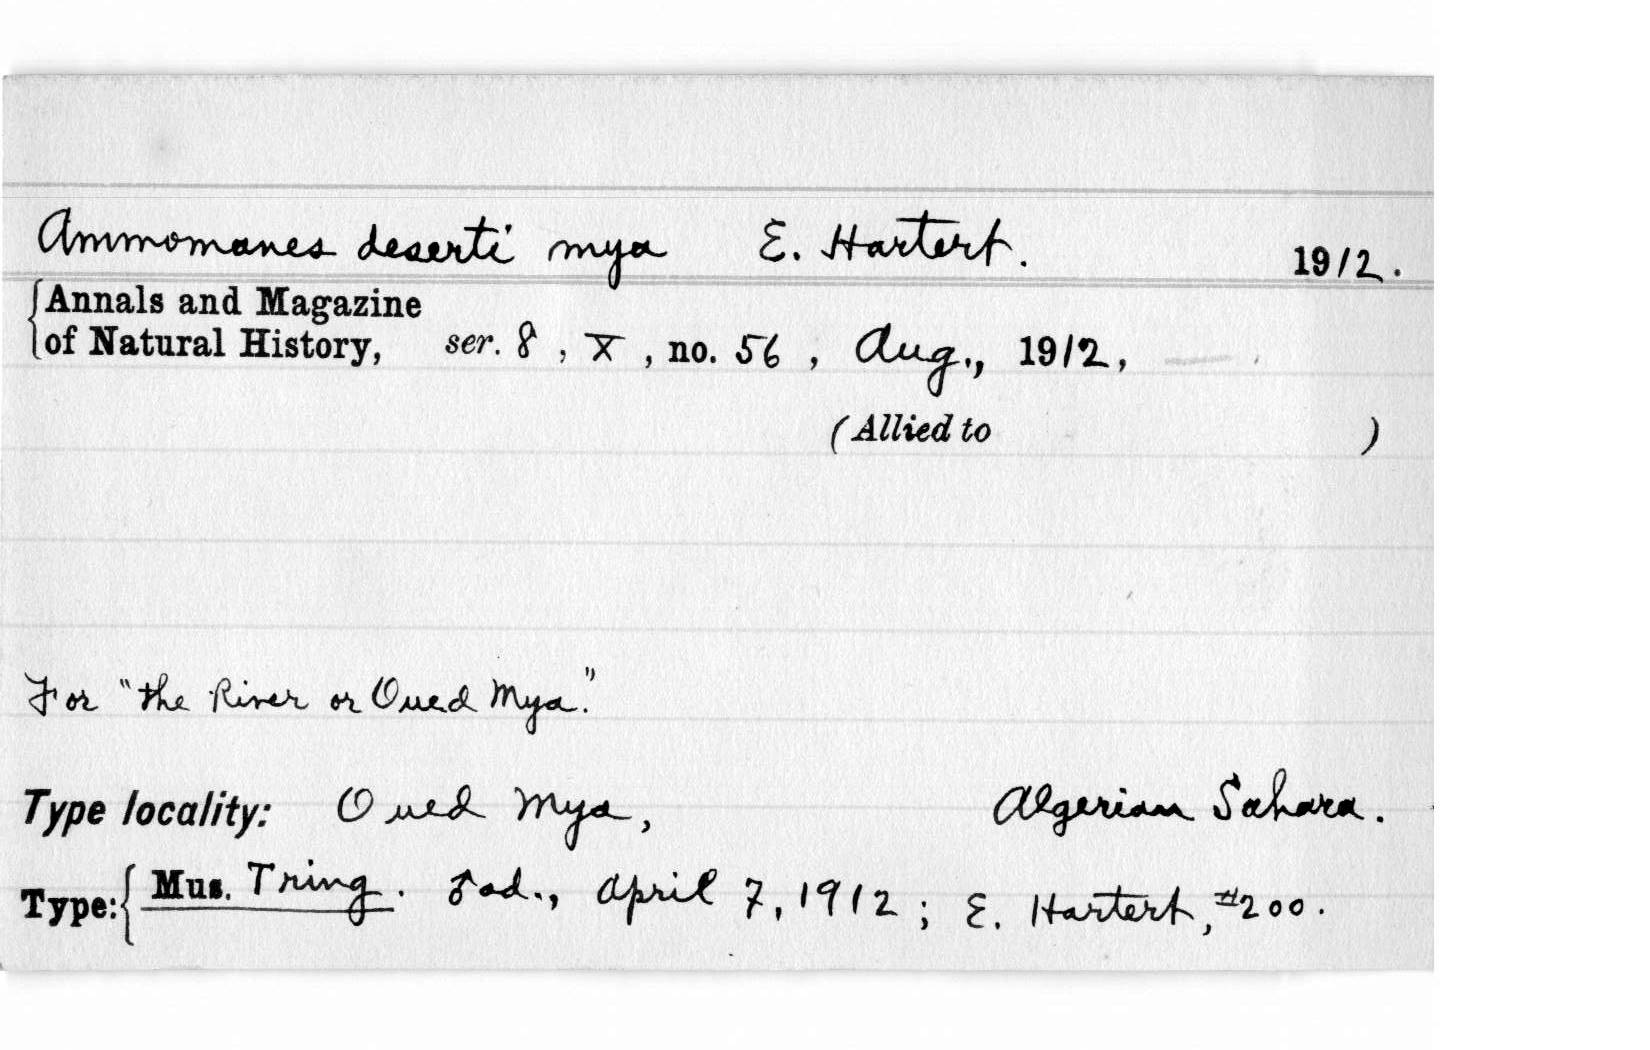 Ammomanes deserti mya E. Hartert. 1912.
Annals and Magazine
of Natural History, ser. 8, X, no. 56, Aug., 1912,
(Allied to )
For "the River or Oued Mya."
Type locality: Oued Mya, Algerian Sahara.
Type: Mus. Tring. ♂ ad., April 7, 1912; E. Hartert, #200.